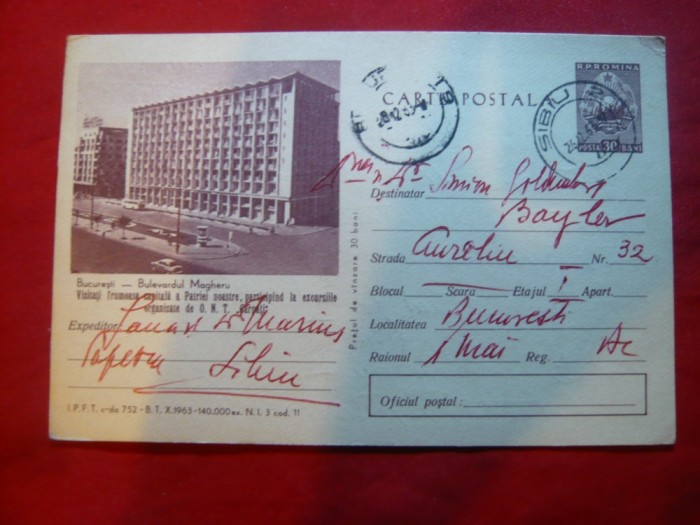 CARTĂ POSTALĂ
R.P.ROMINA
POSTA 30 BANI
SIBIU
București — Bulevardul Magheru
Vizitați frumoasa capitală a Patriei noastre, participînd la excursiile
organizate de O. N. T. „Carpați”
Expeditor
Sibiu
I.P.F.T. c-da 752 - B.T. X.1963-140.000 ex. N.I. 3 cod. 11
Prețul de vînzare 30 bani
Destinatar Simion Goldenberg
Strada Aureliu Nr. 32
Blocul — Scara — Etajul I Apart.
Localitatea București
Raionul 1 Mai Reg.
Oficiul poștal :